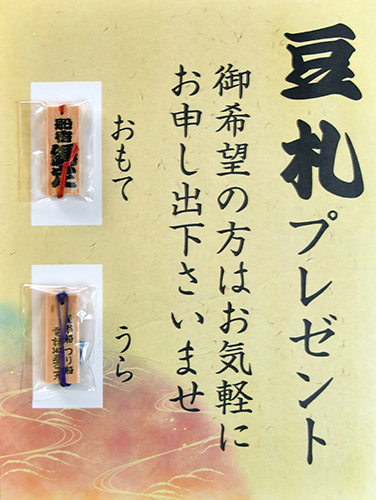 豆札プレゼント
御希望の方はお気軽に
お申し出下さいませ
おもて
うら